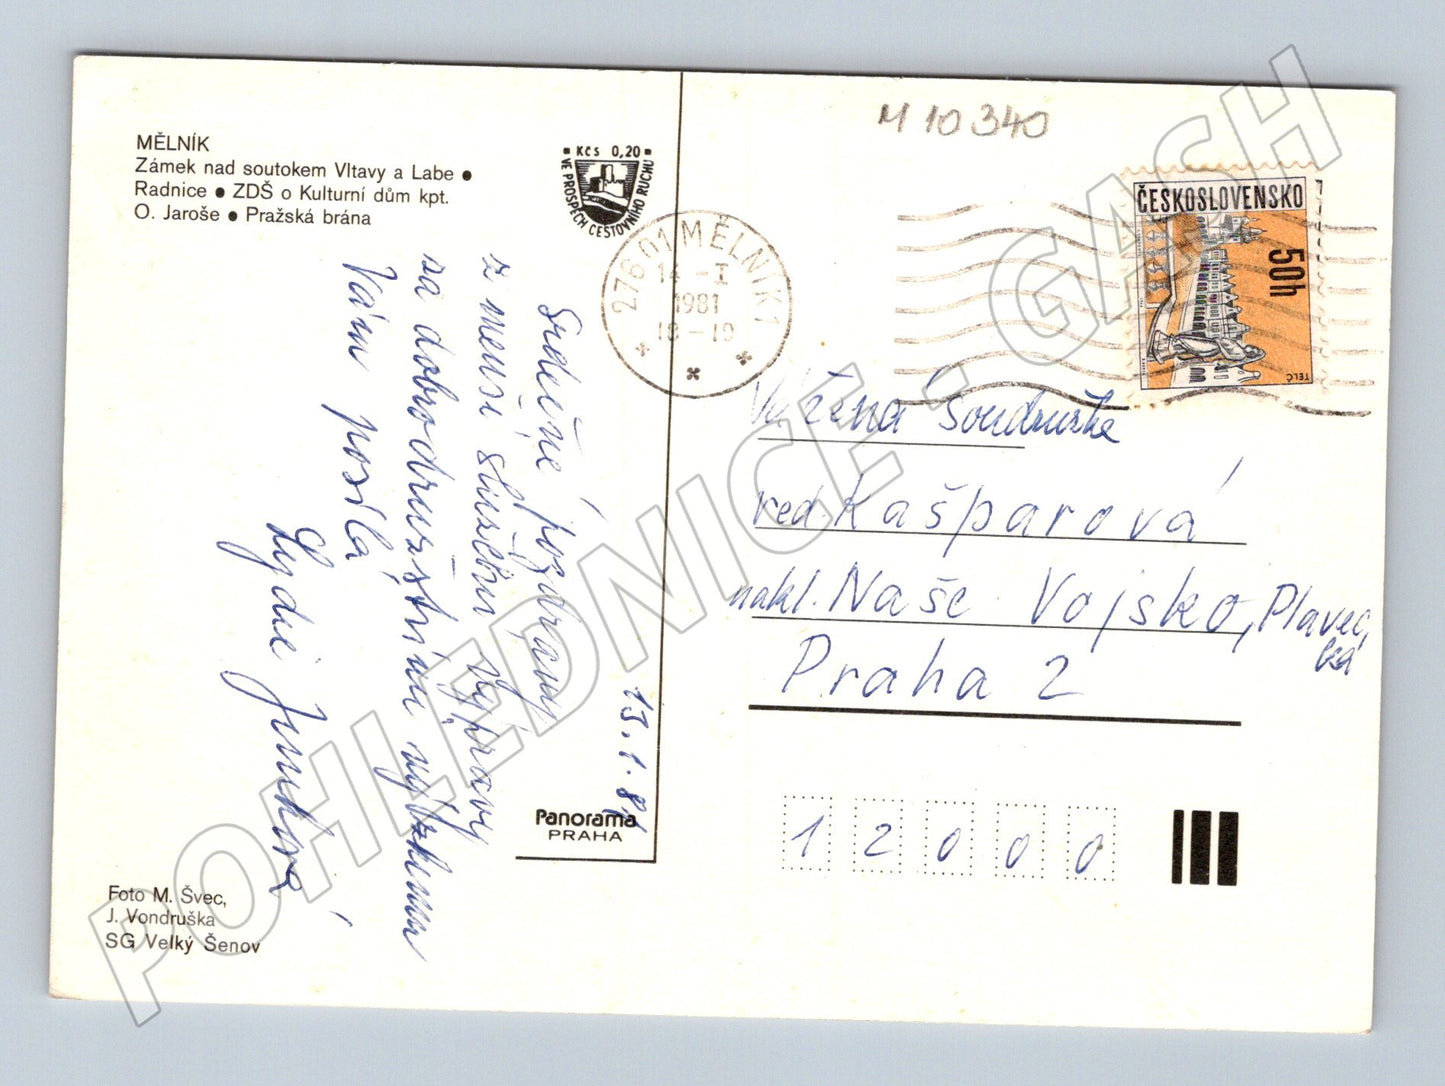 MĚLNÍK
Zámek nad soutokem Vltavy a Labe ●
Radnice ● ZDŠ o Kulturní dům kpt.
O. Jaroše ● Pražská brána
Kčs 0,20
VE PROSPĚCH CESTOVNÍHO RUCHU
276 01 MĚLNÍK 1
14. -I
1981
18-19
M 10340
ČESKOSLOVENSKO
50h
TELČ
Srdečné pozdravy
z menší služební výpravy
za dobrodružným výzkumem
Vám posílá
Lydie
13.1.81
Vážená Soudružka
red. Kašparová
nakl. Naše Vojsko, Plavec,
ká
Praha 2
12000
Panorama
PRAHA
Foto M. Švec,
J. Vondruška
SG Velký Šenov
POHLEDNICE - GASH